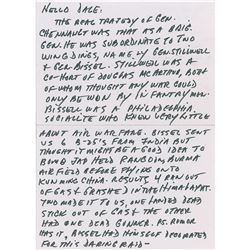 HELLO DALE:
THE REAL TRAGEDY OF GEN.
CHENNAULT WAS THAT AS A BRIG.
GEN. HE WAS SUBORDINATE TO TWO
WING DINGS, NAMELY GEN. STILLWELL
& GEN. BISSEL. STILLWELL WAS A
CO-HORT OF DOUGLAS MCARTHUR, BOTH
OF WHOM THOUGHT ANY WAR COULD
ONLY BE WON BY INFANTRYMEN.
BISSELL WAS A PHILADELPHIA
SOCIALITE WHO KNEW VERY LITTLE
ABOUT AIR WARFARE. BISSEL SENT
US 6 B-25'S FROM INDIA BUT
THOUGHT IT MIGHT BE A GOOD IDEA TO
BOMB JAP HELD RANGOON, BURMA
AIRFIELD BEFORE FLYING ON TO
KUNMING CHINA. RESULTS, 4 RAN OUT
OF GAS & CRASHED IN THE HIMALAYAS.
TWO MADE IT TO US, ONE LANDED DEAD
STICK OUT OF GAS & THE OTHER
HAD ONE DEAD GUNNER. P.S. RUMOR
HAS IT, BISSEL HAD HIMSELF DECORATED
FOR THIS DARING RAID-